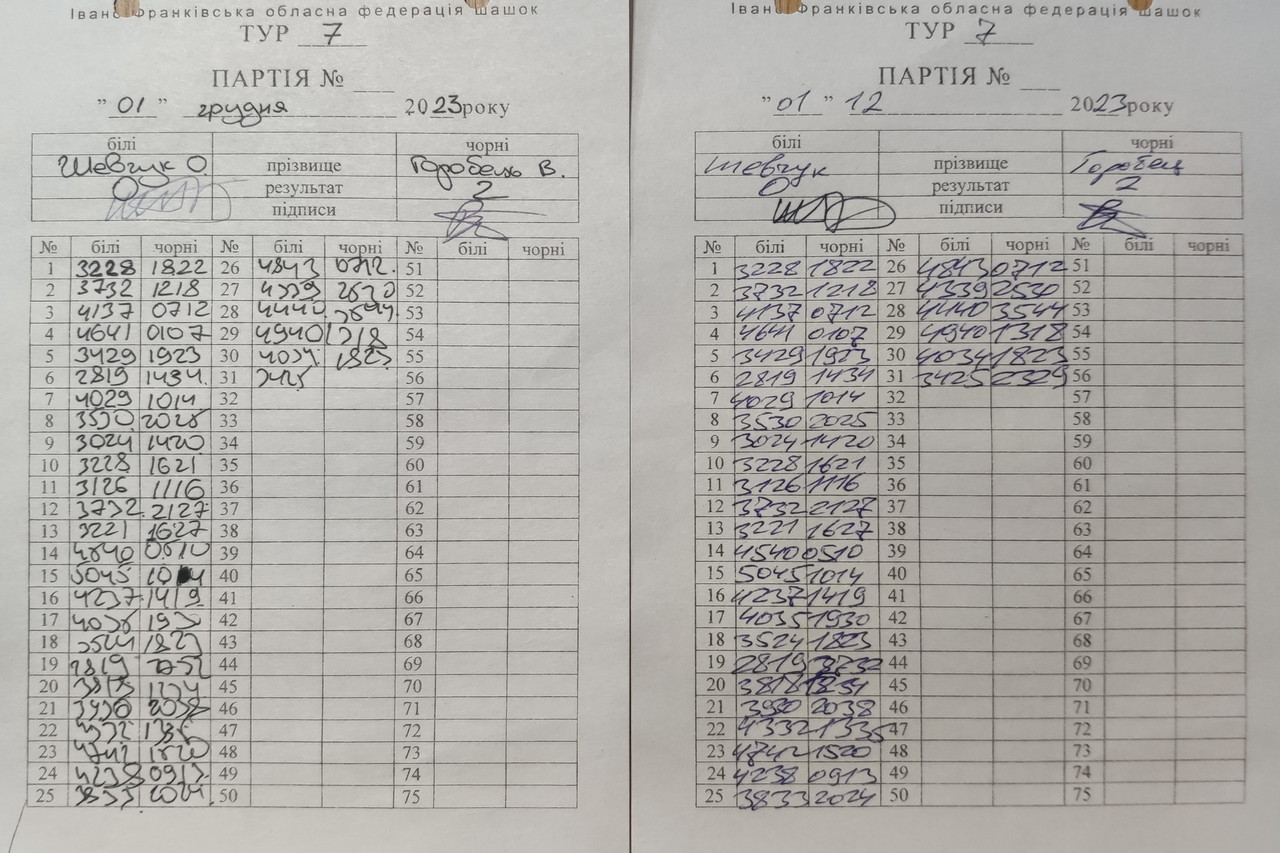 Івано Франківська обласна федерація шашок
ТУР 7
ПАРТІЯ №
" 01 " грудня 2023року
білі чорні
Шевчук О. прізвище Горобець В.
0 результат 2
підписи
№ білі чорні № білі чорні № білі чорні
1 3228 1822 26 4843 0712. 51
2 3732 1218 27 4339 2530 52
3 4137 0712 28 4440 3544 53
4 4641 0107 29 4940 1318 54
5 3429 1923 30 4034. 1823. 55
6 2819 1434. 31 3425 56
7 4029 1014 32 57
8 3530 2025 33 58
9 3024 1420 34 59
10 3228 1621 35 60
11 3126 1116 36 61
12 3732. 2127 37 62
13 3221 1627 38 63
14 4540 0510 39 64
15 5045 1014 40 65
16 4237. 1419 41 66
17 4035 1930 42 67
18 3524 1823 43 68
19 2819 44 69
20 45 70
21 3930 2038 46 71
22 4332 1335 47 72
23 4742 1520 48 73
24 4238 0913 49 74
25 3833 2024 50 75
Івано Франківська обласна федерація шашок
ТУР 7
ПАРТІЯ №
" 01 " 12 2023року
білі чорні
Шевчук прізвище Горобец
0 результат 2
підписи
№ білі чорні № білі чорні № білі чорні
1 3228 1822 26 4843 0712 51
2 3732 1218 27 4339 2530 52
3 4137 0712 28 4440 3544 53
4 4641 0107 29 4940 1318 54
5 3429 1923 30 4034 1823 55
6 2819 1434 31 3425 2329 56
7 4029 1014 32 57
8 3530 2025 33 58
9 3024 1420 34 59
10 3228 1621 35 60
11 3126 1116 36 61
12 3732 2127 37 62
13 3221 1627 38 63
14 4540 0510 39 64
15 5045 1014 40 65
16 4237 1419 41 66
17 4035 1930 42 67
18 3524 1823 43 68
19 2819 3732 44 69
20 3818 1234 45 70
21 3930 2038 46 71
22 4332 1335 47 72
23 4742 1520 48 73
24 4238 0913 49 74
25 3833 2024 50 75